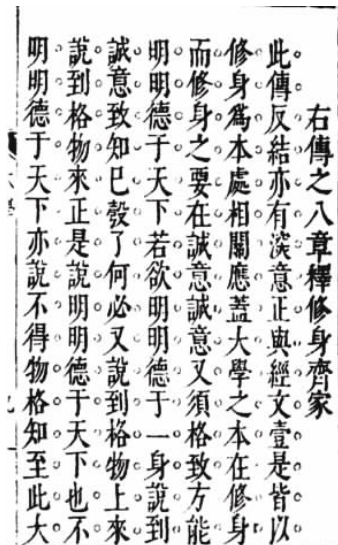 右傳之八章釋修身齊家
此傳反結亦有深意正與經文壹是皆以
修身爲本處相關應蓋大學之本在修身
而修身之要在誠意誠意又須格致方能
明明德于天下若欲明明德于一身說到
誠意致知已彀了何必又說到格物上來
說到格物來正是說明明德于天下也不
明明德于天下亦說不得物格知至此大